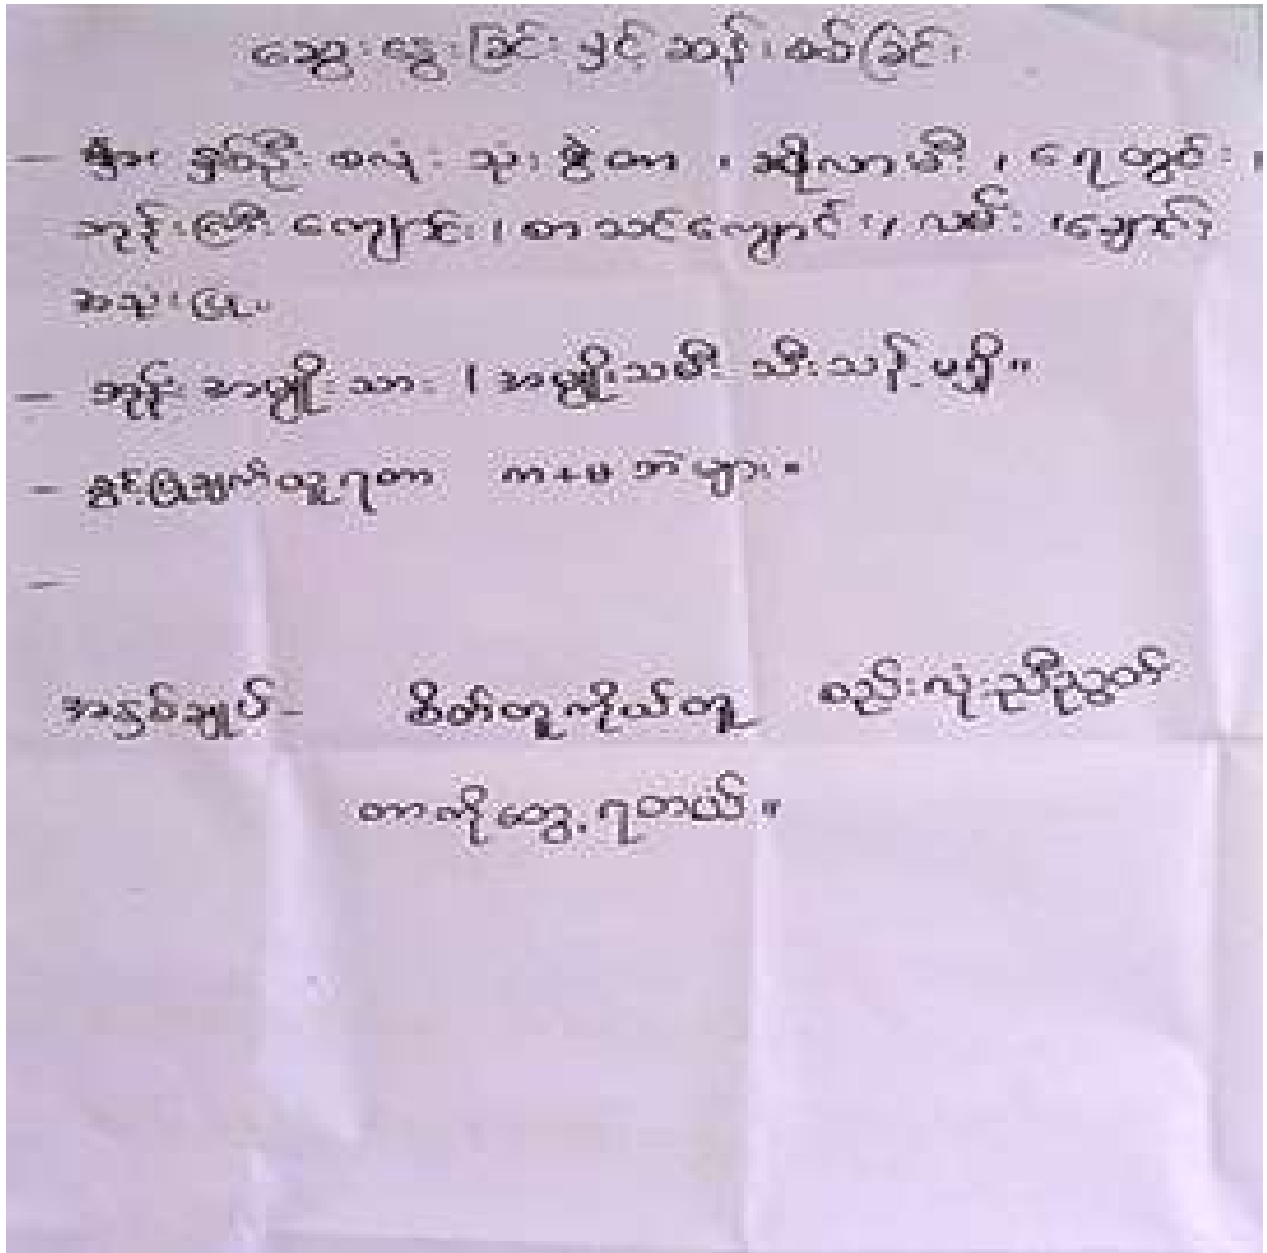 ဆွေးနွေးခြင်းနှင့်ဆန်းစစ်ခြင်း
- ရွာစလုံးသုံးစွဲတာ ၊ ဆိုလာမီး ၊ ရေတွင်း ၊
ဘုန်းကြီးကျောင်း ၊ စာသင်ကျောင်း ၊ လမ်း ၊
အသုံးပြု။
- အမျိုးသား ၊ အမျိုးသမီး သီးသန့်မရှိ။
- ခွင့်ပြုချက်ယူရတာ က+မ ဘဲများ။
-
အနှစ်ချုပ် - စိတ်တူကိုယ်တူ စည်းလုံးညီညွတ်
တာကိုတွေ့ရတယ်။